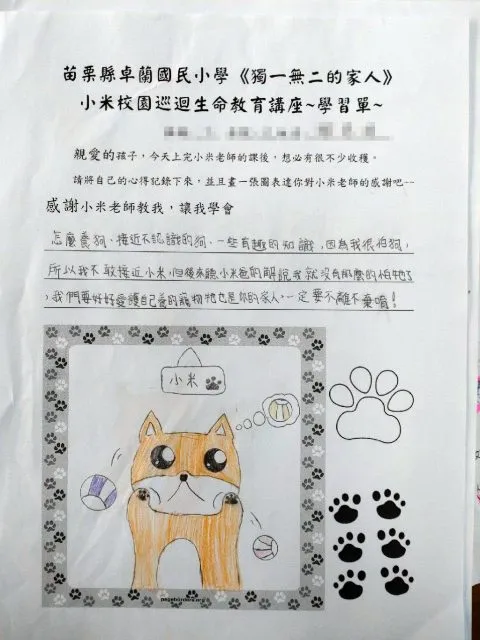 苗栗縣卓蘭國民小學《獨一無二的家人》
小米校園巡迴生命教育講座~學習單~
親愛的孩子，今天上完小米老師的課後，想必有很不少收穫。
請將自己的心得記錄下來，並且畫一張圖表達你對小米老師的感謝吧--
感謝小米老師教我，讓我學會
怎麼養狗、接近不認識的狗，一些有趣的知識，因為我很怕狗，
所以我不敢接近小米，但後來聽小米爸的解說我就沒有那麼的怕牠了
，我們要好好愛護自己養的寵物牠也是你的家人，一定要不離不棄唷！
小米
pageborders.org